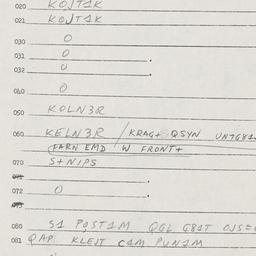 020 KOJT1K
021 KOJT1K
030 0
031 0 .
032 0 .
040 0
050 KOLN3R
060 KELN3R / KRAG+ QSYN UNTG81
(FARN EMD W FRONT+
070 S+NIPS
071 .
072 0 .
073
080 S1 PQST1M QGL G81T OJS=
081 QAP KLEJT C1M PUN1M